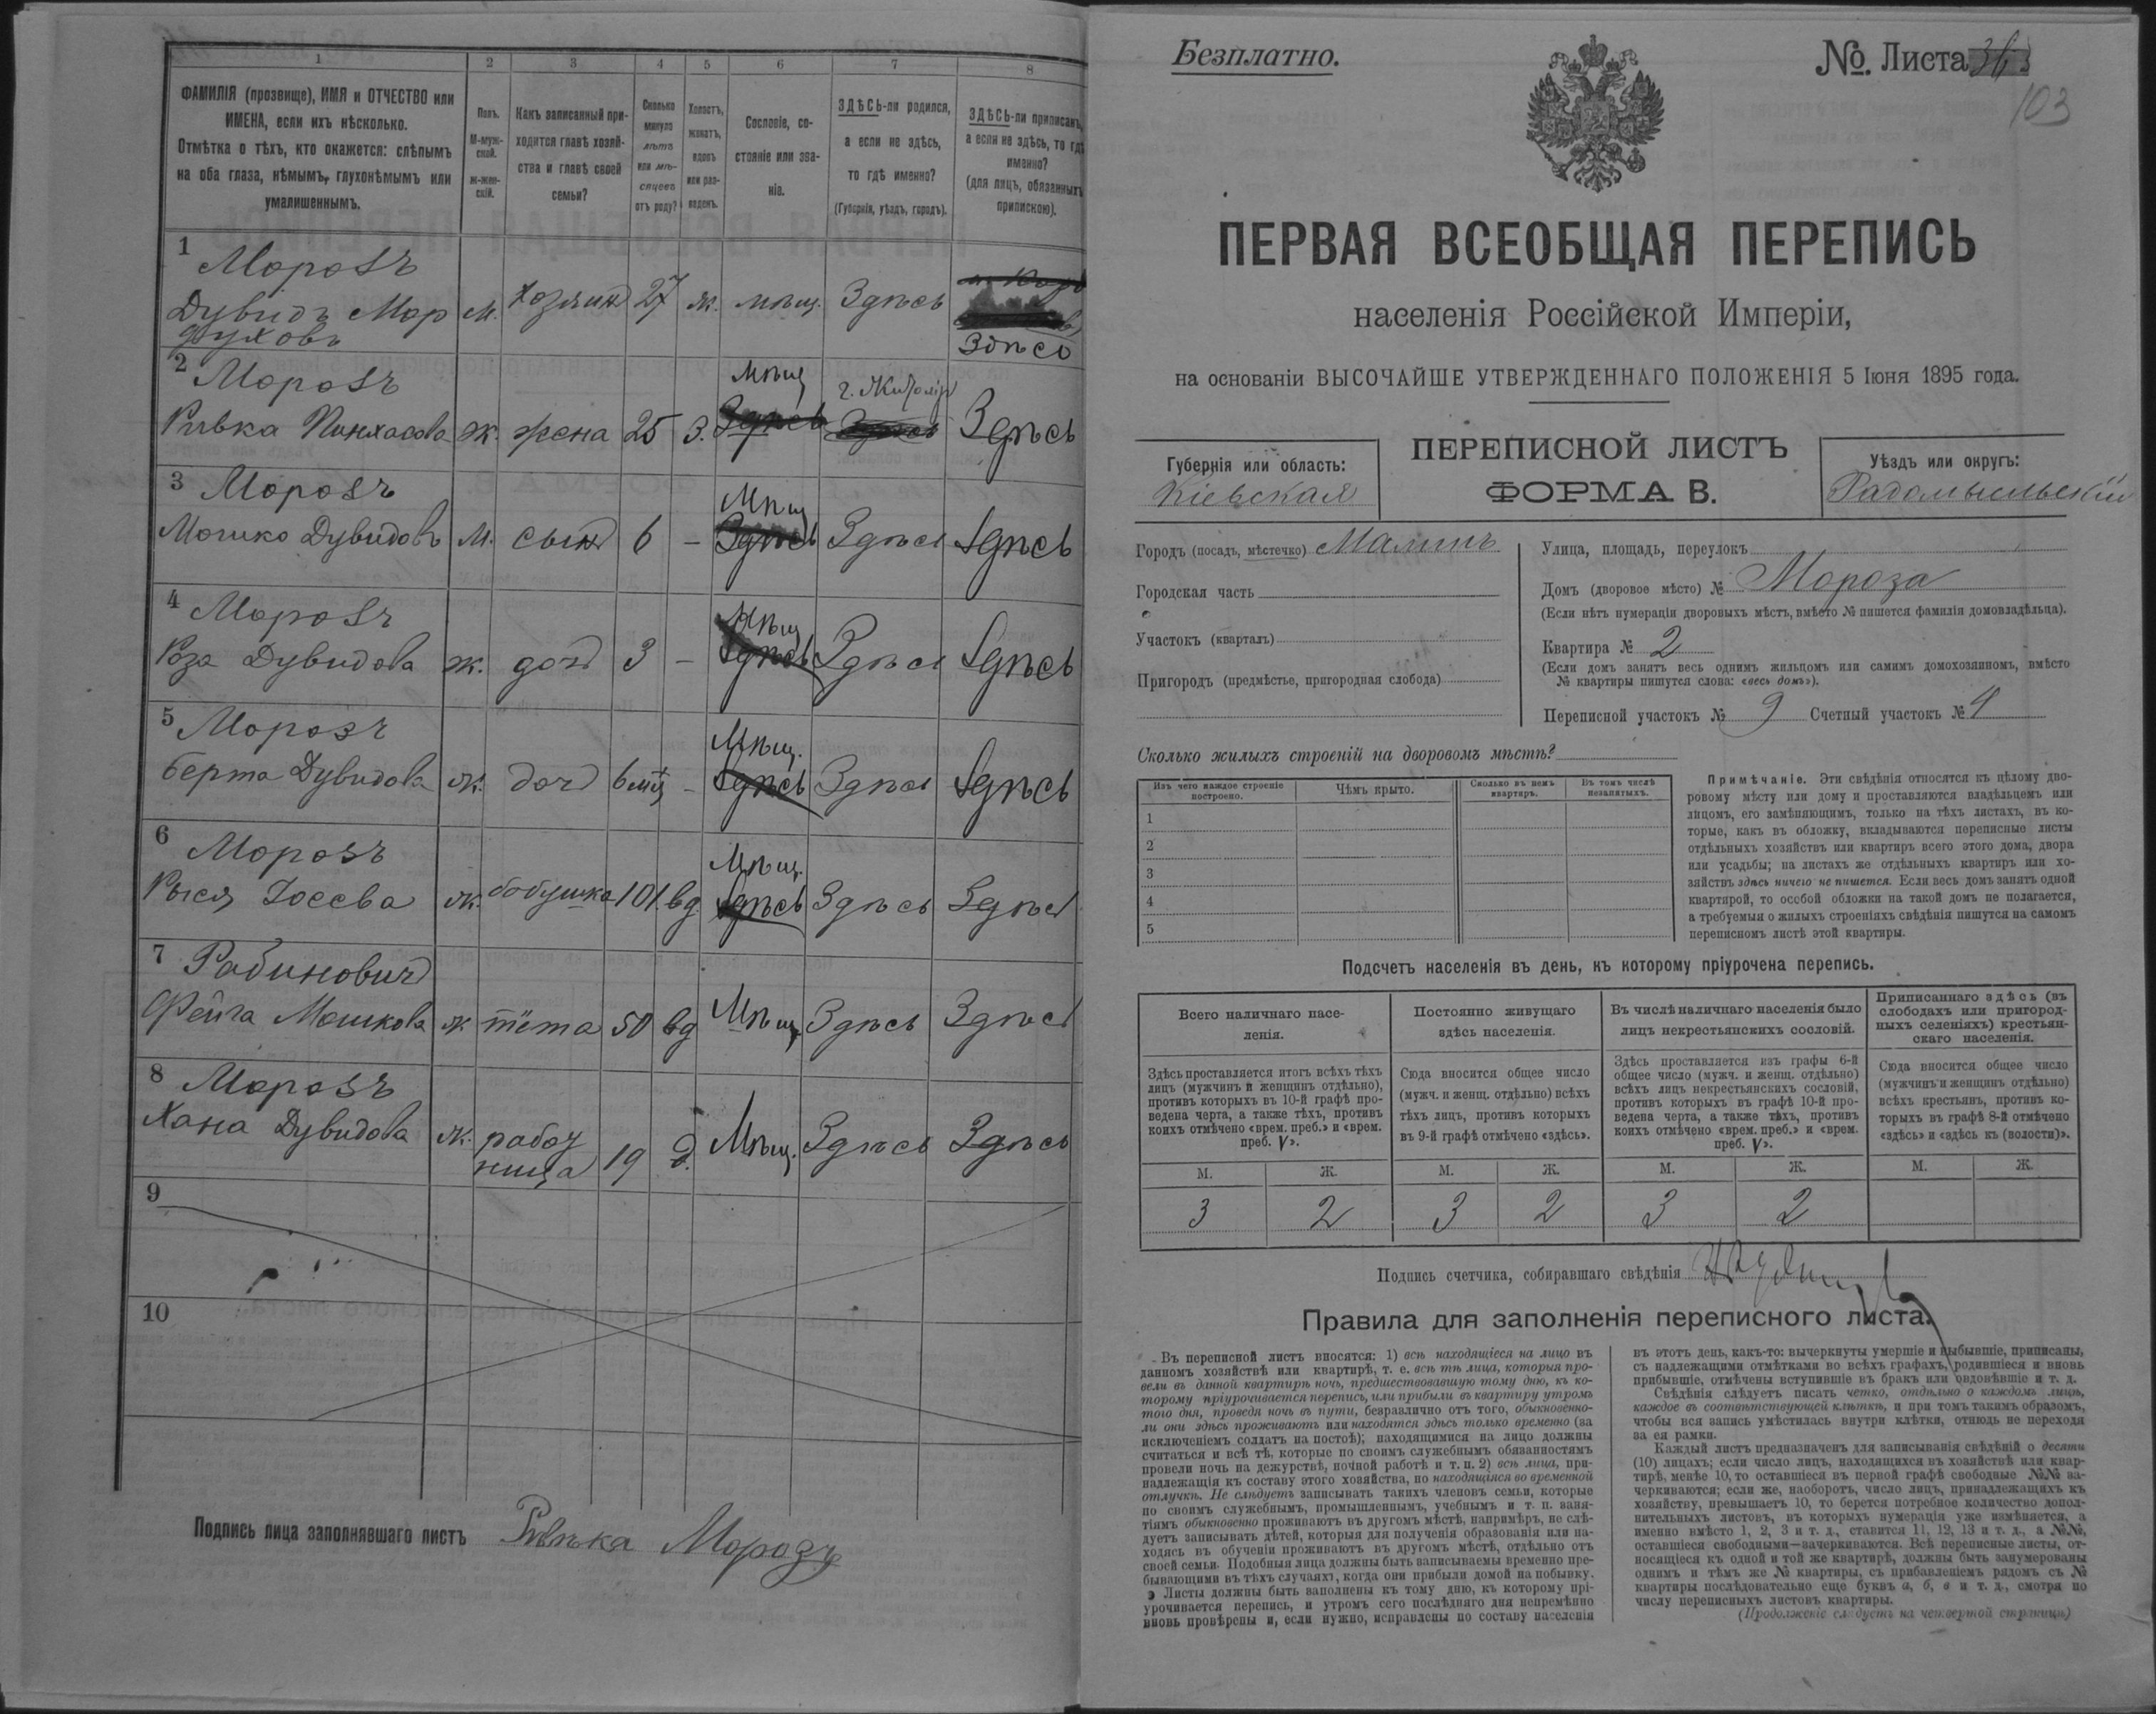 1
2
3
4
5
6
7
8
ФАМИЛІЯ (прозвище), ИМЯ и ОТЧЕСТВО или
ИМЕНА, если ихъ нѣсколько.
Отмѣтка о тѣхъ, кто окажется: слѣпымъ
на оба глаза, нѣмымъ, глухонѣмымъ или
умалишеннымъ.
Полъ.
М-муж-
ской.
ж-жен-
скій.
Какъ записанный при-
ходится главѣ хозяй-
ства и главѣ своей
семьи?
Сколько
минуло
лѣтъ
или мѣ-
сяцевъ
отъ роду?
Холостъ,
женатъ,
вдовъ
или раз-
веденъ.
Сословіе, со-
стояніе или зва-
ніе.
ЗДѢСЬ-ли родился,
а если не здѣсь,
то гдѣ именно?
(Губернія, уѣздъ, городъ).
ЗДѢСЬ-ли приписанъ,
а если не здѣсь, то гдѣ
именно?
(для лицъ, обязанныхъ
припискою).
1 Морозъ
Дувидъ Мор
духовъ
М. хозяинъ 27 ж. мѣщ. Здѣсь
Здѣсь
2 Морозъ
Рывка Пинхасова Ж. жена 25 З. Мѣщ г. Житомір Здѣсь
3 Морозъ
Мошко Дувидовъ М. сынъ 6 – Мѣщ Здѣсь Здѣсь
4 Морозъ
Роза Дувидова ж. дочь 3 – Мѣщ Здѣсь Здѣсь
5 Морозъ
Берта Дувидова ж. дочь 6 мѣ – Мѣщ. Здѣсь Здѣсь
6 Морозъ
Рыся Іосева ж. бабушка 101 вд. Мѣщ. Здѣсь Здѣсь
7 Рабиновичъ
Фейга Мошкова ж тётя 50 вд Мѣщ. Здѣсь Здѣсь
8 Морозъ
Хана Дувидова ж. работ
ница 19 д. Мѣщ. Здѣсь Здѣсь
9
10
Подпись лица заполнявшаго листъ Ривька Морозъ
Безплатно.
№. Листа
103
ПЕРВАЯ ВСЕОБЩАЯ ПЕРЕПИСЬ
населенія Россійской Имперіи,
на основаніи ВЫСОЧАЙШЕ УТВЕРЖДЕННАГО ПОЛОЖЕНІЯ 5 Іюня 1895 года.
Губернія или область:
Кіевская
ПЕРЕПИСНОЙ ЛИСТЪ
ФОРМА В.
Уѣздъ или округъ:
Радомысльскій
Городъ (посадъ, мѣстечко) Малинъ
Городская часть
Участокъ (кварталъ)
Пригородъ (предмѣстье, пригородная слобода)
Улица, площадь, переулокъ
Домъ (дворовое мѣсто) № Мороза
(Если нѣтъ нумераціи дворовыхъ мѣстъ, вмѣсто № пишется фамилія домовладѣльца).
Квартира № 2
(Если домъ занятъ весь однимъ жильцомъ или самимъ домохозяиномъ, вмѣсто
№ квартиры пишутся слова: «весь домъ»).
Переписной участокъ № 9 Счетный участокъ № 4
Сколько жилыхъ строеній на дворовомъ мѣстѣ?
Изъ чего каждое строеніе
построено.
Чѣмъ крыто.
Сколько въ немъ
квартиръ.
Въ томъ числѣ
незанятыхъ.
1
2
3
4
5
Примѣчаніе. Эти свѣдѣнія относятся къ цѣлому дво-
ровому мѣсту или дому и проставляются владѣльцемъ или
лицомъ, его замѣняющимъ, только на тѣхъ листахъ, въ ко-
торые, какъ въ обложку, вкладываются переписные листы
отдѣльныхъ хозяйствъ или квартиръ всего этого дома, двора
или усадьбы; на листахъ же отдѣльныхъ квартиръ или хо-
зяйствъ здѣсь ничего не пишется. Если весь домъ занятъ одной
квартирой, то особой обложки на такой домъ не полагается,
а требуемыя о жилыхъ строеніяхъ свѣдѣнія пишутся на самомъ
переписномъ листѣ этой квартиры.
Подсчетъ населенія въ день, къ которому пріурочена перепись.
Всего наличнаго насе-
ленія.
Постоянно живущаго
здѣсь населенія.
Въ числѣ наличнаго населенія было
лицъ некрестьянскихъ сословій.
Приписаннаго здѣсь (въ
слободахъ или пригород-
ныхъ селеніяхъ) крестьян-
скаго населенія.
Здѣсь проставляется итогъ всѣхъ тѣхъ
лицъ (мужчинъ и женщинъ отдѣльно),
противъ которыхъ въ 10-й графѣ про-
ведена черта, а также тѣхъ, противъ
коихъ отмѣчено «врем. преб.» и «врем.
преб. V».
Сюда вносится общее число
(мужч. и женщ. отдѣльно) всѣхъ
тѣхъ лицъ, противъ которыхъ
въ 9-й графѣ отмѣчено «здѣсь».
Здѣсь проставляется изъ графы 6-й
общее число (мужч. и женщ. отдѣльно)
всѣхъ лицъ некрестьянскихъ сословій,
противъ которыхъ въ графѣ 10-й про-
ведена черта, а также тѣхъ, противъ
коихъ отмѣчено «врем. преб.» и «врем.
преб. V».
Сюда вносится общее число
(мужчинъ и женщинъ отдѣльно)
всѣхъ крестьянъ, противъ ко-
торыхъ въ графѣ 8-й отмѣчено
«здѣсь» и «здѣсь къ (волости)».
М. Ж. М. Ж. М. Ж. М. Ж.
3 2 3 2 3 2
Подпись счетчика, собиравшаго свѣдѣнія
Правила для заполненія переписного листа.
Въ переписной листъ вносятся: 1) всѣ находящіеся на лицо въ
данномъ хозяйствѣ или квартирѣ, т. е. всѣ тѣ лица, которыя про-
вели въ данной квартирѣ ночь, предшествовавшую тому дню, къ ко-
торому пріурочивается перепись, или прибыли въ квартиру утромъ
того дня, проведя ночь въ пути, безразлично отъ того, обыкновенно-
ли они здѣсь проживаютъ или находятся здѣсь только временно (за
исключеніемъ солдатъ на постоѣ); находящимися на лицо должны
считаться и всѣ тѣ, которые по своимъ служебнымъ обязанностямъ
провели ночь на дежурствѣ, ночной работѣ и т. п. 2) всѣ лица, при-
надлежащія къ составу этого хозяйства, но находящіяся во временной
отлучкѣ. Не слѣдуетъ записывать такихъ членовъ семьи, которые
по своимъ служебнымъ, промышленнымъ, учебнымъ и т. п. заня-
тіямъ обыкновенно проживаютъ въ другомъ мѣстѣ, напримѣръ, не слѣ-
дуетъ записывать дѣтей, которыя для полученія образованія или на-
ходясь въ обученіи проживаютъ въ другомъ мѣстѣ, отдѣльно отъ
своей семьи. Подобныя лица должны быть записываемы временно пре-
бывающими въ тѣхъ случаяхъ, когда они прибыли домой на побывку.
Листы должны быть заполнены къ тому дню, къ которому прі-
урочивается перепись, и утромъ сего послѣдняго дня непремѣнно
вновь провѣрены и, если нужно, исправлены по составу населенія
въ этотъ день, какъ-то: вычеркнуты умершіе и выбывшіе, приписаны,
съ надлежащими отмѣтками во всѣхъ графахъ, родившіеся и вновь
прибывшіе, отмѣчены вступившіе въ бракъ или овдовѣвшіе и т. д.
Свѣдѣнія слѣдуетъ писать четко, отдѣльно о каждомъ лицѣ,
каждое въ соотвѣтствующей клѣткѣ, и при томъ такимъ образомъ,
чтобы вся запись умѣстилась внутри клѣтки, отнюдь не переходя
за ея рамки.
Каждый листъ предназначенъ для записыванія свѣдѣній о десяти
(10) лицахъ; если число лицъ, находящихся въ хозяйствѣ или квар-
тирѣ, менѣе 10, то оставшіеся въ первой графѣ свободные №№ за-
черкиваются; если же, наоборотъ, число лицъ, принадлежащихъ къ
хозяйству, превышаетъ 10, то берется потребное количество допол-
нительныхъ листовъ, въ которыхъ нумерація уже измѣняется, а
именно вмѣсто 1, 2, 3 и т. д., ставится 11, 12, 13 и т. д., а №№,
оставшіеся свободными—зачеркиваются. Всѣ переписные листы, от-
носящіеся къ одной и той же квартирѣ, должны быть занумерованы
однимъ и тѣмъ же № квартиры, съ прибавленіемъ рядомъ съ №
квартиры послѣдовательно еще буквъ а, б, в и т. д., смотря по
числу переписныхъ листовъ квартиры.
(Продолженіе слѣдуетъ на четвертой страницѣ)